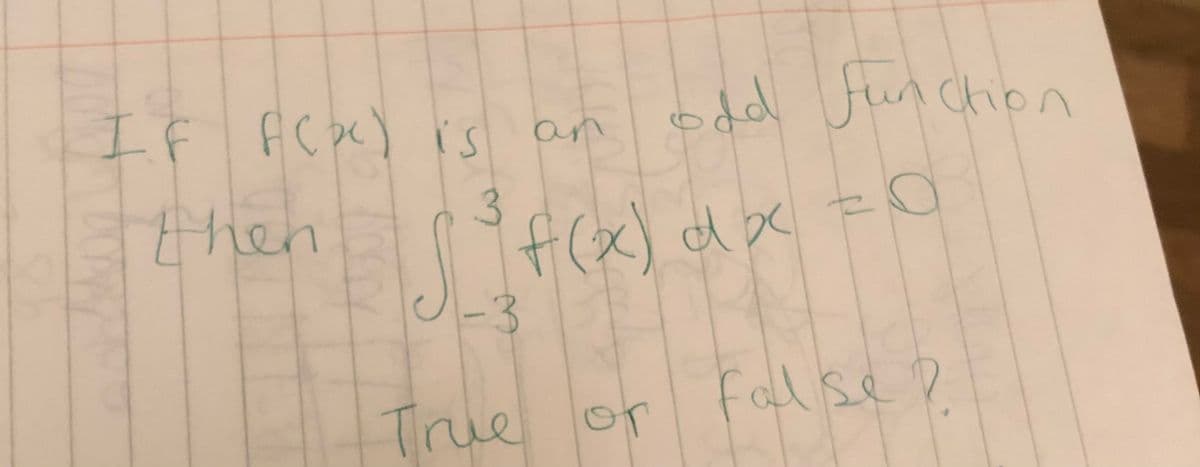 If f(x) is an odd function
then ∫₋₃³ f(x) dx = 0
True or false?